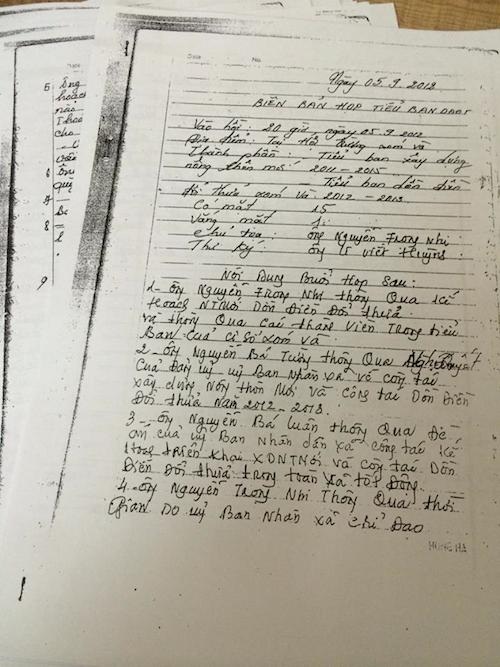 Date No.
Ngày 05.9.2012
BIÊN BẢN HỌP TIỂU BAN DĐĐT
Vào hồi: 20 giờ, ngày 05.9.2012
Địa điểm: Tại Hội trường xóm Và
Thành phần: Tiểu ban xây dựng
nông thôn mới 2011-2015
Tiểu ban dồn điền
đổi thửa xóm Và 2012-2013
Có mặt 15
Vắng mặt 1
Chủ tọa: Ông Nguyễn Trọng Nhi
Thư ký ông Lê Viết Huỳnh
Nội Dung Buổi Họp Sau:
1- Ông Nguyễn Trọng Nhi thông Qua kế
hoạch NTMới Dồn Điền Đổi thửa
và thông Qua các thành Viên Trong tiểu
Ban của cơ sở xóm Và
2- Ông Nguyễn Bá Tường thông Qua Nghị Quyết
Của Đảng uỷ uỷ Ban Nhân xã về công tác
xây dựng Nông thôn Mới và công tác Dồn Điền
Đổi thửa Năm 2012-2013.
3- Ông Nguyễn Bá Luân thông Qua Đề
án của uỷ Ban Nhân dân xã công tác kế
hoạch triển khai XDNTMới và công tác Dồn
Điền Đổi thửa trong toàn xã
4- Ông Nguyễn Trọng Nhi Thông Qua thời
Gian Do uỷ Ban Nhân xã chỉ Đạo
HONG HA
Date
5 Ông
hoạch
nào
Thao
cho
6
7
8
9